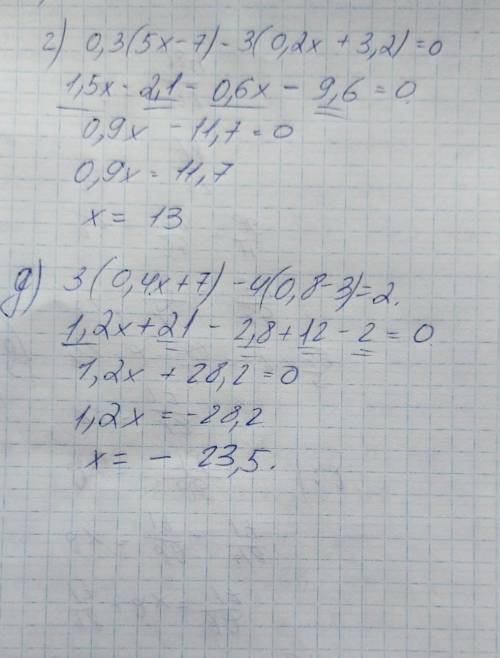 г) 0,3(5x-7)-3(0,2x+3,2)=0
1,5x-2,1-0,6x-9,6=0
0,9x-11,7=0
0,9x=11,7
x=13
д) 3(0,4x+7)-4(0,8-3)=2.
1,2x+21-2,8+12-2=0
1,2x+28,2=0
1,2x=-28,2
x=-23,5.